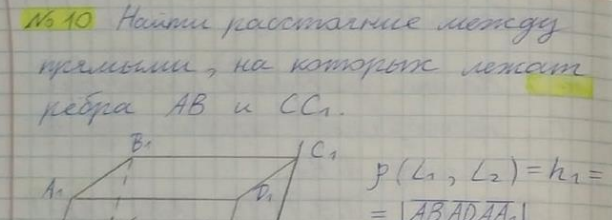 №10 Найти расстояние между
прямыми, на которых лежат
рёбра AB и CC₁.
B₁
C₁
ρ(L₁, L₂) = h₁ =
A₁
D₁
= |AB AD AA₁|